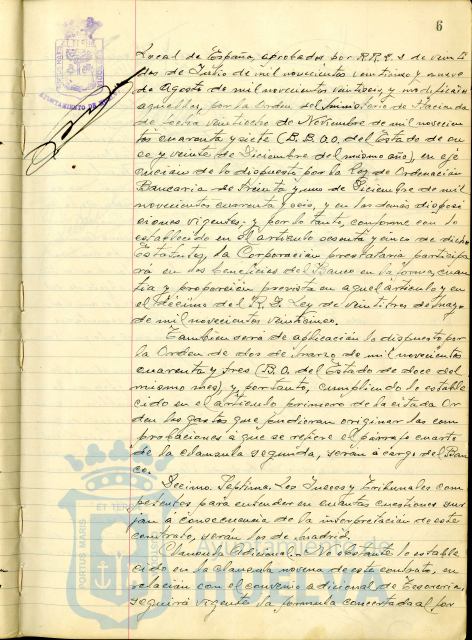 6
AYUNTAMIENTO DE
Local de España, aprobados por RR. D. D. de veinti
dos de Julio de mil novecientos veintiseis y nueve
de Agosto de mil novecientos veintiseis, y modificados
aquellos, por la Orden del Ministerio de Hacienda
de fecha veintiocho de Noviembre de mil novecien
tos cuarenta y siete (B.B.O.O. del Estado de on
ce y veinte de Diciembre del mismo año), en eje
cucion de lo dispuesto por la Ley de Ordenación
Bancaria de treinta y uno de Diciembre de mil
novecientos cuarenta y seis, y en las demás disposi
ciones vigentes y por lo tanto, conforme con lo
establecido en el articulo sesenta y cinco de dichos
Estatutos, la Corporación prestataria participa
rá en los beneficios del Banco en la forma, cuan
tia y proporción prevista en aquel articulo y en
el décimo del R.D. Ley de veintitres de Mayo
de mil novecientos veinticinco.
Tambien será de aplicación lo dispuesto por
la Orden de dos de Marzo de mil novecientos
cuarenta y tres (B.O. del Estado de doce del
mismo mes), y, por tanto, cumpliendo lo estable
cido en el articulo primero de la citada Or
den los gastos que pudieran originar las com
probaciones a que se refiere el párrafo cuarto
de la clausula segunda, serán a cargo del Ban
co.
Decimo Septima. Los Jueces y Tribunales com
petentes para entender en cuantas cuestiones sur
jan á consecuencia de la interpretación de este
contrato, serán los de Madrid.
Clausula adicional. No obstante lo estable
cido en la clausula novena de este contrato, en
relación con el convenio adicional de Tesoreria,
seguirá vigente la formula concertada al for
PORTUS MARIS ET TERRAE
Ayuntamiento de